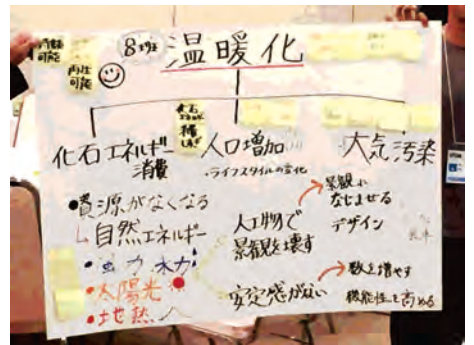 持続
可能
再生
可能
8班
温暖化
化石
化石エネルギー
消費
人口増加
・ライフスタイルの変化
大気汚染
●資源がなくなる
自然エネルギー
・風力 水力
・太陽光
・地熱
人工物で
景観を壊す
安定感がない
景観に
なじませる
デザイン
数を増やす
機能性を高める